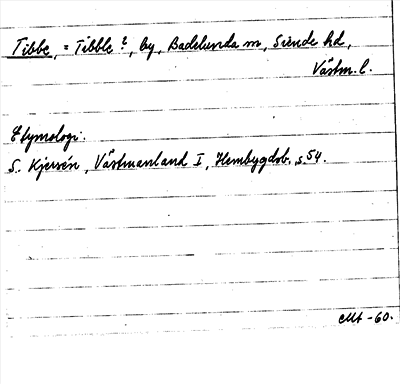 Tibbe, = Tibble?, by, Badelunda sn, Siende hd,
Västm. l.
Etymologi:
S. Kjersén, Västmanland I, Hembygdsb. s 54.
-60.